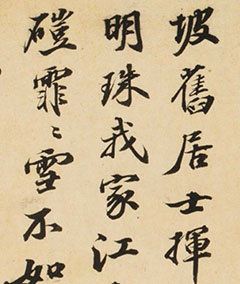 坡舊居士揮
明珠我家江
磑霏〻雪不如